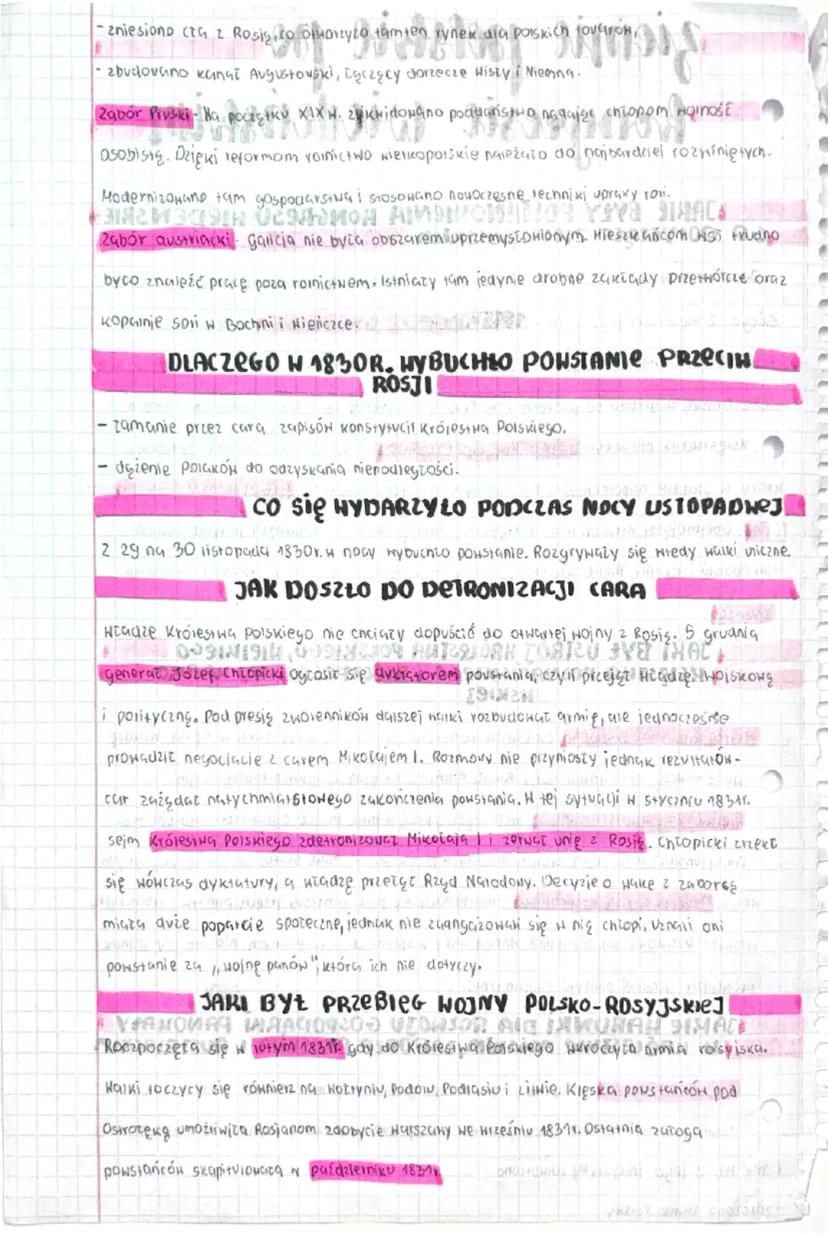 - zniesiono cła z Rosją, co otworzyło tamten rynek dla polskich towarów,
- zbudowano kanał Augustowski, łączący dorzecze Wisły i Niemna.
zabór Pruski - Na początku XIX w. zlikwidowano poddaństwo nadając chłopom wolność
osobistą. Dzięki reformom rolnictwo wielkopolskie należało do najbardziej rozwiniętych.
Modernizowano tam gospodarstwa i stosowano nowoczesne techniki uprawy roli.
zabór austriacki - galicja nie była obszarem uprzemysłowionym. Mieszkańcom wsi trudno
było znaleźć pracę poza rolnictwem. Istniały tam jedynie drobne zakłady przetwórcze oraz
kopalnie soli w Bochni i Wieliczce.
DLACZEGO W 1830R. WYBUCHŁO POWSTANIE PRZECIW
ROSJI
- łamanie przez cara zapisów konstytucji Królestwa Polskiego.
- dążenie Polaków do odzyskania niepodległości.
CO SIĘ WYDARZYŁO PODCZAS NOCY LISTOPADWEJ
Z 29 na 30 listopada 1830r. w nocy wybuchło powstanie. Rozgrywały się wtedy walki uliczne.
JAK DOSZŁO DO DETRONIZACJI CARA
Władze Królestwa Polskiego nie chciały dopuścić do otwartej wojny z Rosją. 5 grudnia
generał Józef Chłopicki ogłosił się dyktatorem powstania, czyli przejął władzę wojskową
i polityczną. Pod presją zwolenników dalszej walki rozbudował armię, ale jednocześnie
prowadził negocjacje z carem Mikołajem I. Rozmowy nie przyniosły jednak rezultatów-
car zażądał natychmiastowego zakończenia powstania. W tej sytuacji w styczniu 1831r.
sejm Królestwa Polskiego zdetronizował Mikołaja I i zerwał unię z Rosją. Chłopicki zrzekł
się wówczas dyktatury, a władzę przejął Rząd Narodowy. Decyzje o walce z zaborcą
miała duże poparcie społeczne, jednak nie zaangażowali się w nią chłopi. Uznali oni
powstanie za „wojnę panów", która ich nie dotyczy.
JAKI BYŁ PRZEBIEG WOJNY POLSKO-ROSYJSKIEJ
Rozpoczęła się w lutym 1831r. gdy do Królestwa Polskiego wkroczyła armia rosyjska.
Walki toczyły się również na Wołyniu, Podolu, Podlasiu i Litwie. Klęska powstańców pod
Ostrołęką umożliwiła Rosjanom zdobycie Warszawy we wrześniu 1831r. Ostatnia załoga
powstańców skapitulowała w październiku 1831r.